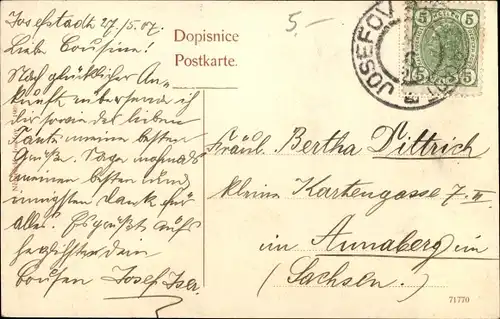 Josefstadt 27./5.07.
Liebe Cousine!
Nach glücklicher An-
kunft übersend ich
dir sowie der lieben
Tante meine besten
Grüße. Sage nochmals
meinen besten und
innigsten Dank für
alles. Es grüßt aufs
herzlichste dein
Cousin Josef
5.-
Dopisnice
Postkarte.
JOSEFOV
5 5
5 5
Fräul. Bertha Dittrich
kleine Kartengasse 7. II
in Annaberg in
(Sachsen.)
71770